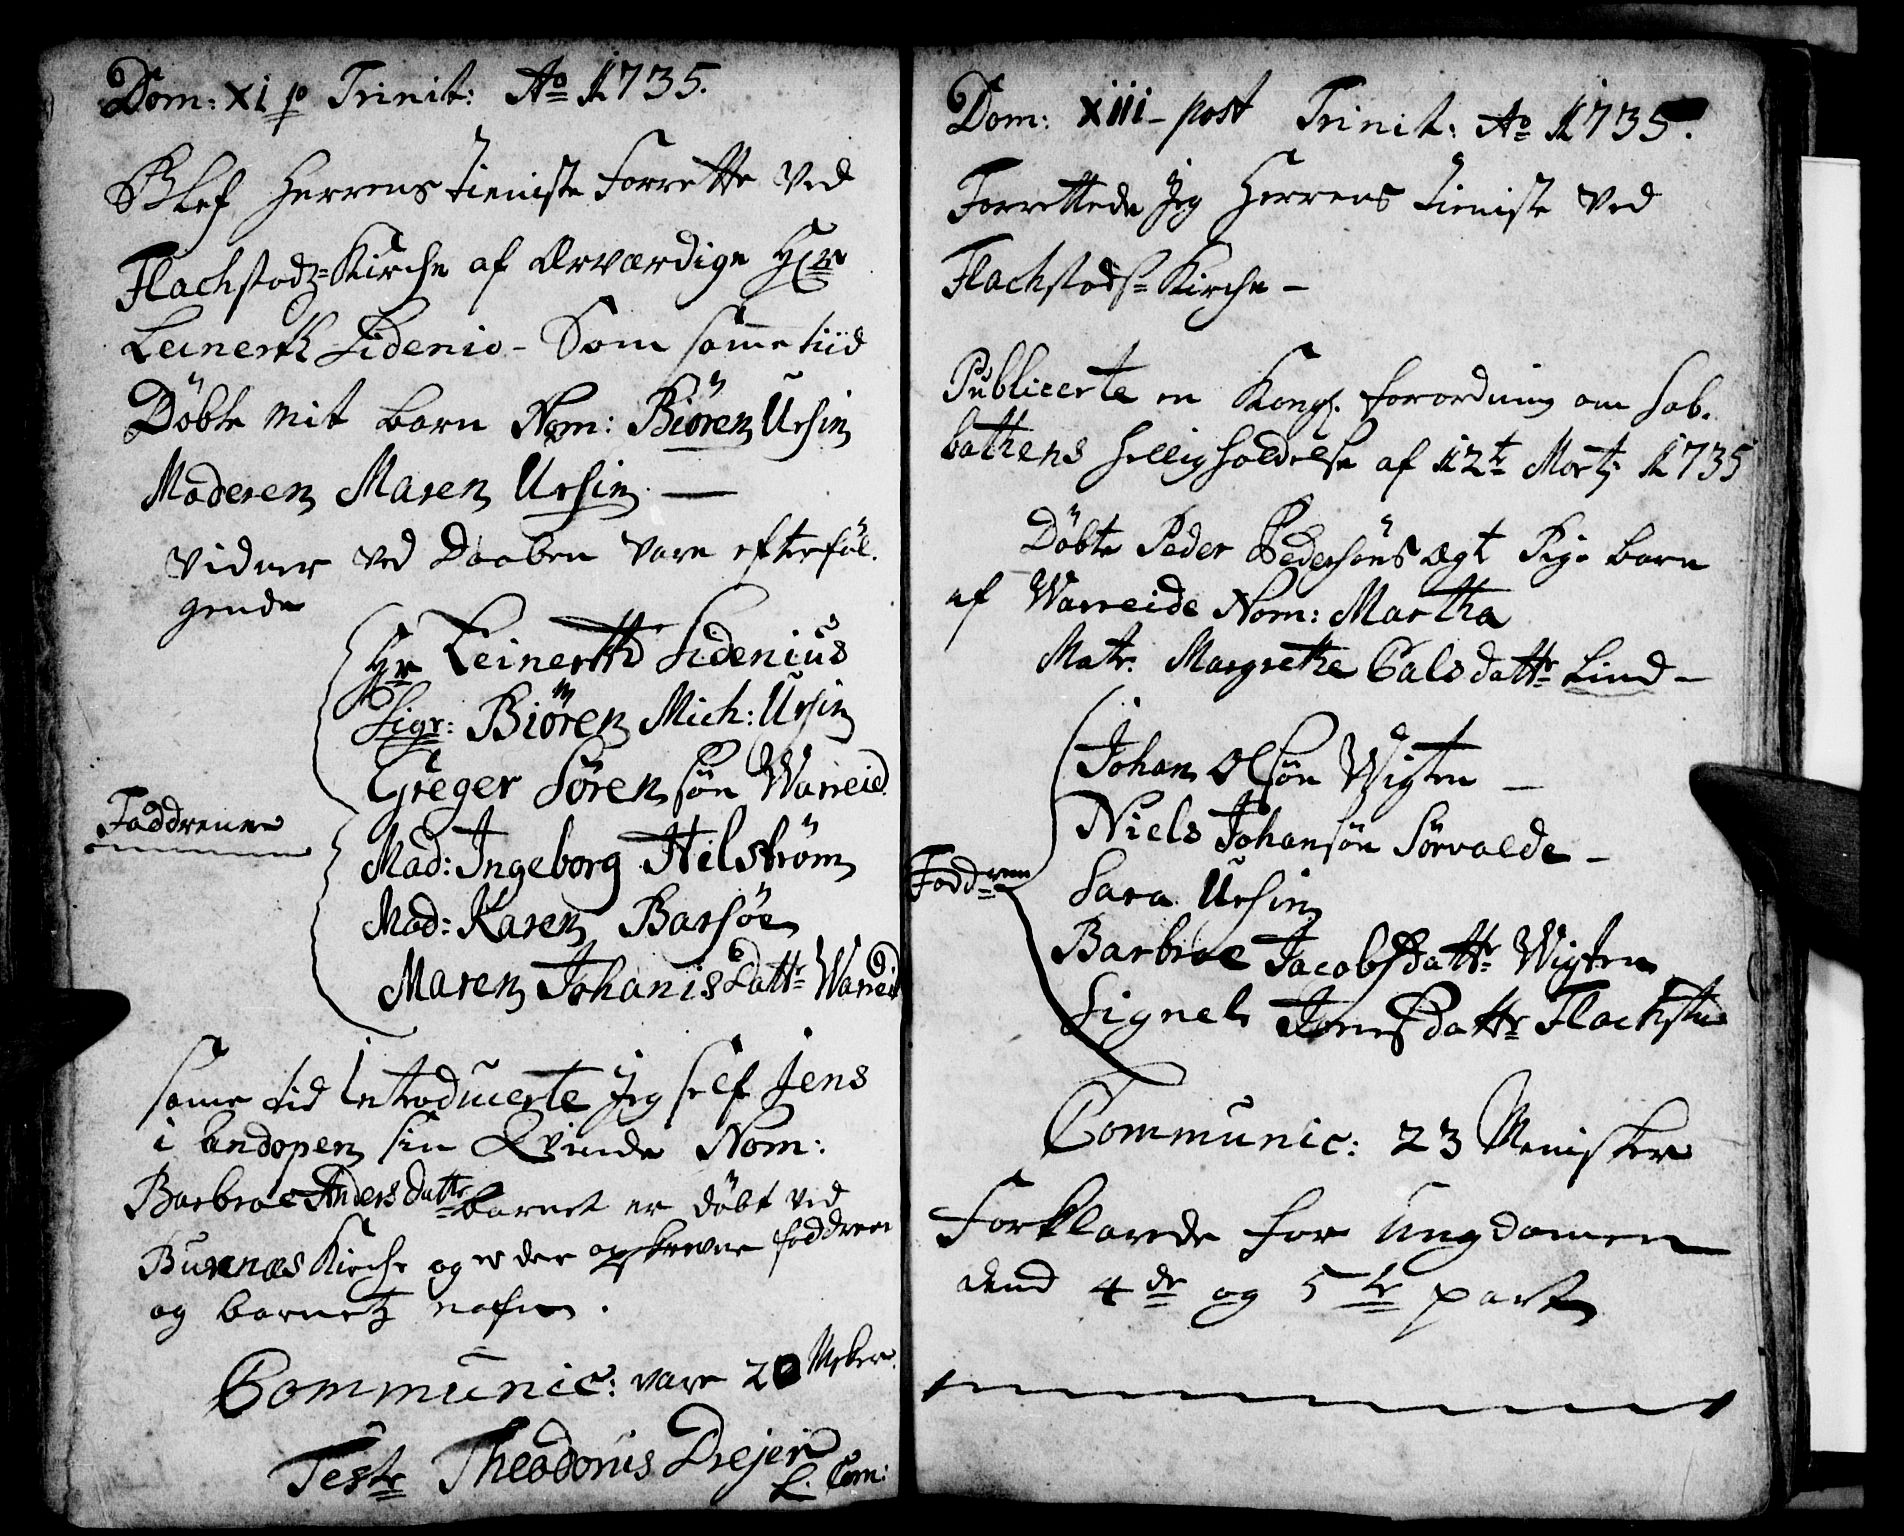 Dom: XI p Trinit: Ao 1735.
Blef Herrens tieniste Forrette ved
Flachstadz=Kirche af Ærværdige Hr
Leinerth Sidenio - Som samme tiid
Döbte mit barn Nom: Biören Ursin
Moderen Maren Ursin. —
Vidner ved Daaben vare efterföl.
gende
Hr Leinerth Sidenius
Sigr: Biören Mich: Ursin
Greger Sörensön Warreid
Faddrene
Mad: Ingeborg Hilström
Mad: Karen Barsöe
Maren Johanis Dattr Warreid
Same tid introducerte jeg self Jens
i landopen sin Qvinde Nom:
Barbroe Anders dattr barnet er döbt ved
Buxnæs Kirche og er der opskrevne faddren
og barnetz nafn.
Communic: vare 20 Msker.
Teste Theodorus Drejer
L. Com:
Dom: XIII post Trinit: Ao 1735.
Forrettede jeg Herrens tieniste ved
Flachstads=Kirche —
Publicerte en Kongl. forordning om Sab.
bathens helligholdelse af 12te Martz 1735
Döbte Peder Pedersöns ægt Pige barn
af Warreide Nom: Martha
Matr. Margrethe Calsdattr Lind —
Johan Olsön Wigten —
Niels Johansön Sörvolde —
Faddren
Sara Ursin
Barbroe Jacobsdattr Wigten
Signel Jonesdattr Flachstad
Communic: 23 Menisker
Forklarede for Ungdomen
dend 4de og 5te part